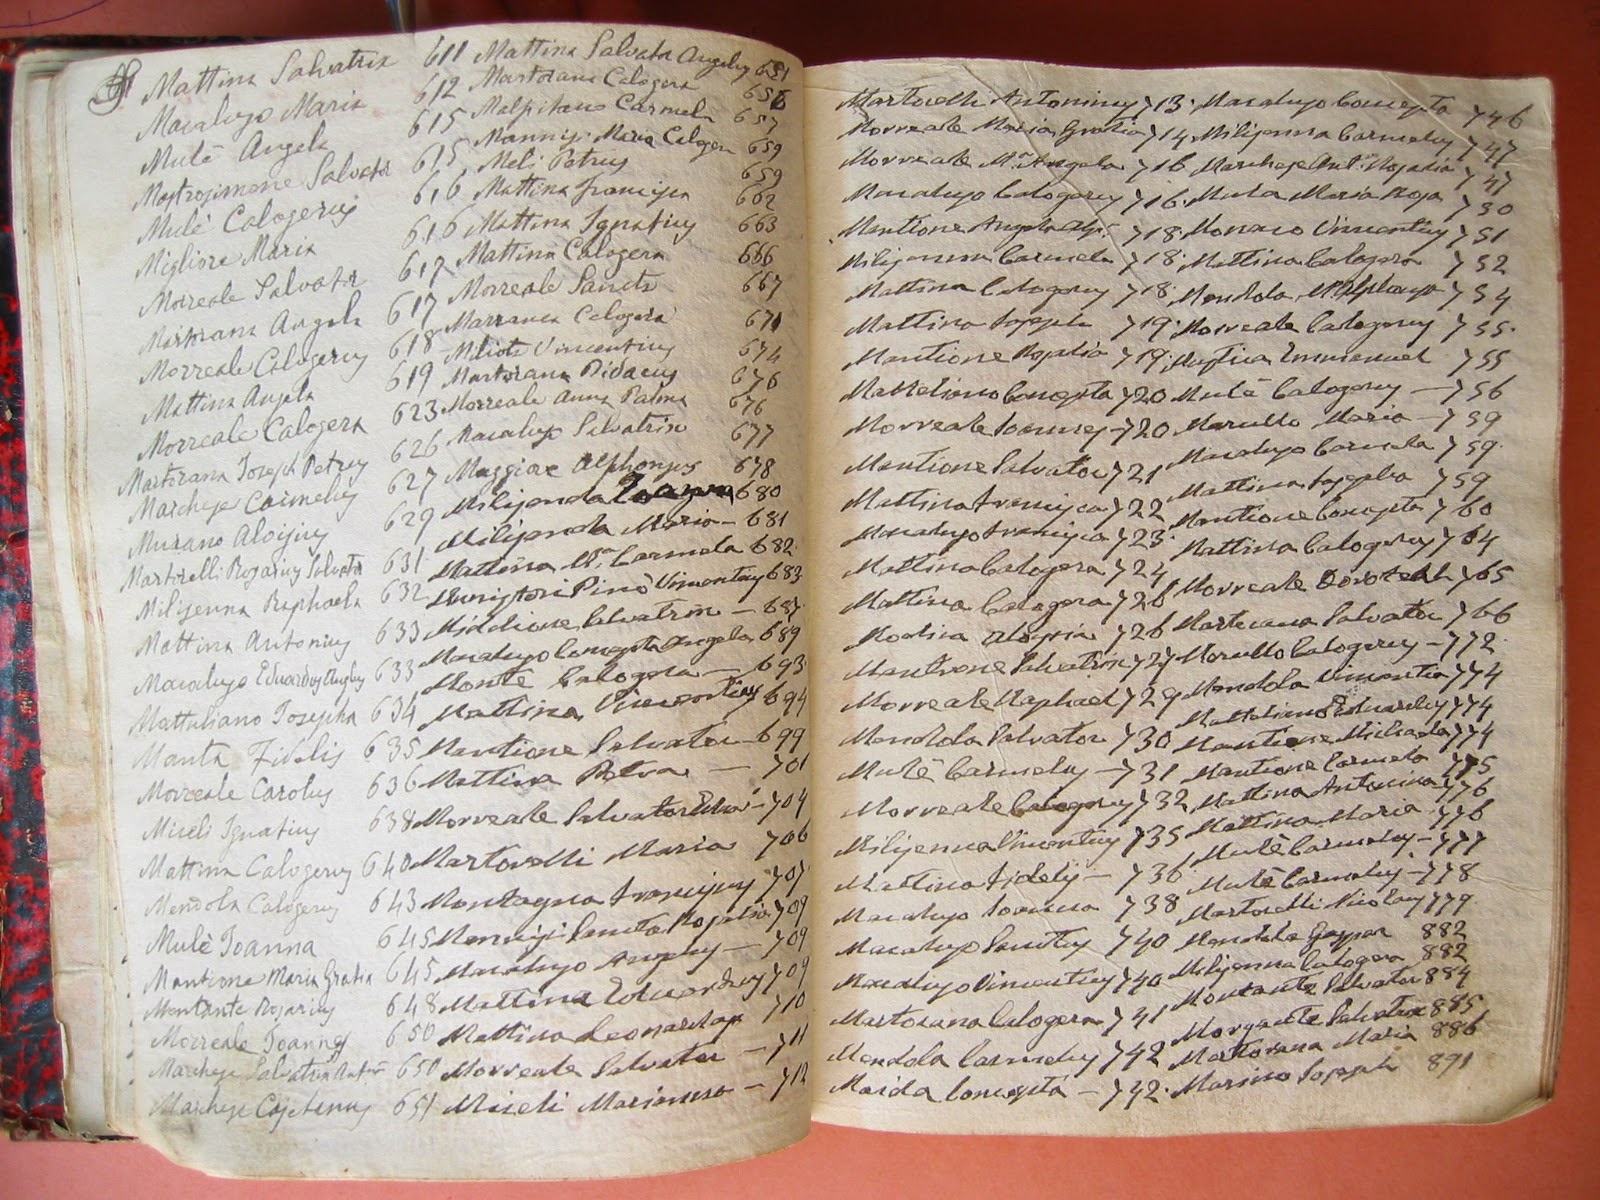 Mattina Salvatrix 611
Macalujo Maria 612
Mulè Angela 615
Mastrosimone Salvator 615
Mulè Calogerus 616
Migliore Maria 616
Morreale Salvator 617
Martorana Angela 617
Morreale Calogerus 618
Mattina Angela 619
Morreale Calogera 623
Martorana Joseph Petrus 626
Marchese Carmelus 627
Murano Aloisius 629
Martorelli Rosarius Salvator 631
Milisenna Raphaela 632
Mattina Antonius 633
Macalujo Eduardus Angelus 633
Mattaliano Josepha 634
Manta Fidelis 635
Morreale Carolus 636
Miceli Ignatius 638
Mattina Calogerus 640
Mendola Calogerus 643
Mulè Joanna 645
Mantione Maria Gratia 645
Montante Rosarius 648
Morreale Joannes 650
Marchese Salvatrix 650
Marchese Cajetanus 651
Mattina Salvator Angelus 651
Martorana Calogera 656
Malpitano Carmela 657
Maria Calogera 659
Meli Petrus 659
Mattina Francisca 662
Mattina Ignatius 663
Mattina Calogera 666
Morreale Sancta 667
Marranca Calogera 671
Milioti Vincentius 674
Martorana Didacus 676
Morreale Anna Palma 676
Macalujo Salvatrix 677
Maggiore Alphonsus 678
Milisenda 680
Milisenda Maria – 681
Mattina Mª Carmela 682
Vincentius 683
Middione Salvatrix – 687
Macalujo Concepta Angela 689
Monte Calogera – 693
Mattina Vincentius 694
Mantione Salvator – 699
Mattina Petra – 701
Morreale Salvator – 704
Martorelli Maria 706
Montagna Franciscus 707
Sancta Rosalia 709
Macalujo Angelus – 709
Mattina Eduardus 709
Mattina Leonardus 710
Morreale Salvator – 711
Miceli Marianna – 712
Martorelli Antoninus 713
Morreale Maria Gratia 714
Morreale Mª Angela 716
Macalujo Calogerus 716
Mantione Angela 718
Milisenna Carmela 718
Mattina Calogerus 718
Mattina Joseph 719
Mantione Rosalia 719
Mattaliano Concepta 720
Morreale Joannes – 720
Mantione Salvator 721
Mattina Francisca 722
Macalujo Francisca 723
Mattina Calogera 724
Mattina Calogera 726
Modica Aloysia 726
Mantione Salvatrix 727
Morreale Raphael 729
Mendola Salvator 730
Mulè Carmelus – 731
Morreale Calogerus 732
Milisenna Vincentius 735
Mattina Fidelis – 736
Macalujo Joanna 738
Macalujo Sanctus 740
Macalujo Vincentius 740
Martorana Calogera 741
Mendola Carmelus 742
Maida Concepta – 742
Macalujo Concepta 746
Milisenna Carmelus 747
Marchese Antª Rosalia 747
Mula Maria Rosa 750
Monaco Vincentius 751
Mattina Calogera 752
Mendola 754
Morreale Calogerus 755
Emmanuel 755
Mulè Calogerus – 756
Marullo Maria – 759
Macalujo Carmela 759
Mattina Josepha 759
Mantione Concepta 760
Mattina Calogerus 764
Morreale Dorothea 765
Martorana Salvator 766
Marullo Calogerus – 772
Mendola Vincentia 774
Mattaliano Eduardus 774
Mantione Michaela 774
Mantione Carmela 775
Mattina Antonina 776
Mattina Maria 776
Mulè Carmelus – 777
Mulè Carmelus – 778
Martorelli Nicolaus 779
Mendola Gaspar 882
Milisenna Calogera 882
Montante Salvator 884
Morgante Salvatrix 885
Martorana Maria 886
Marino Joseph 891